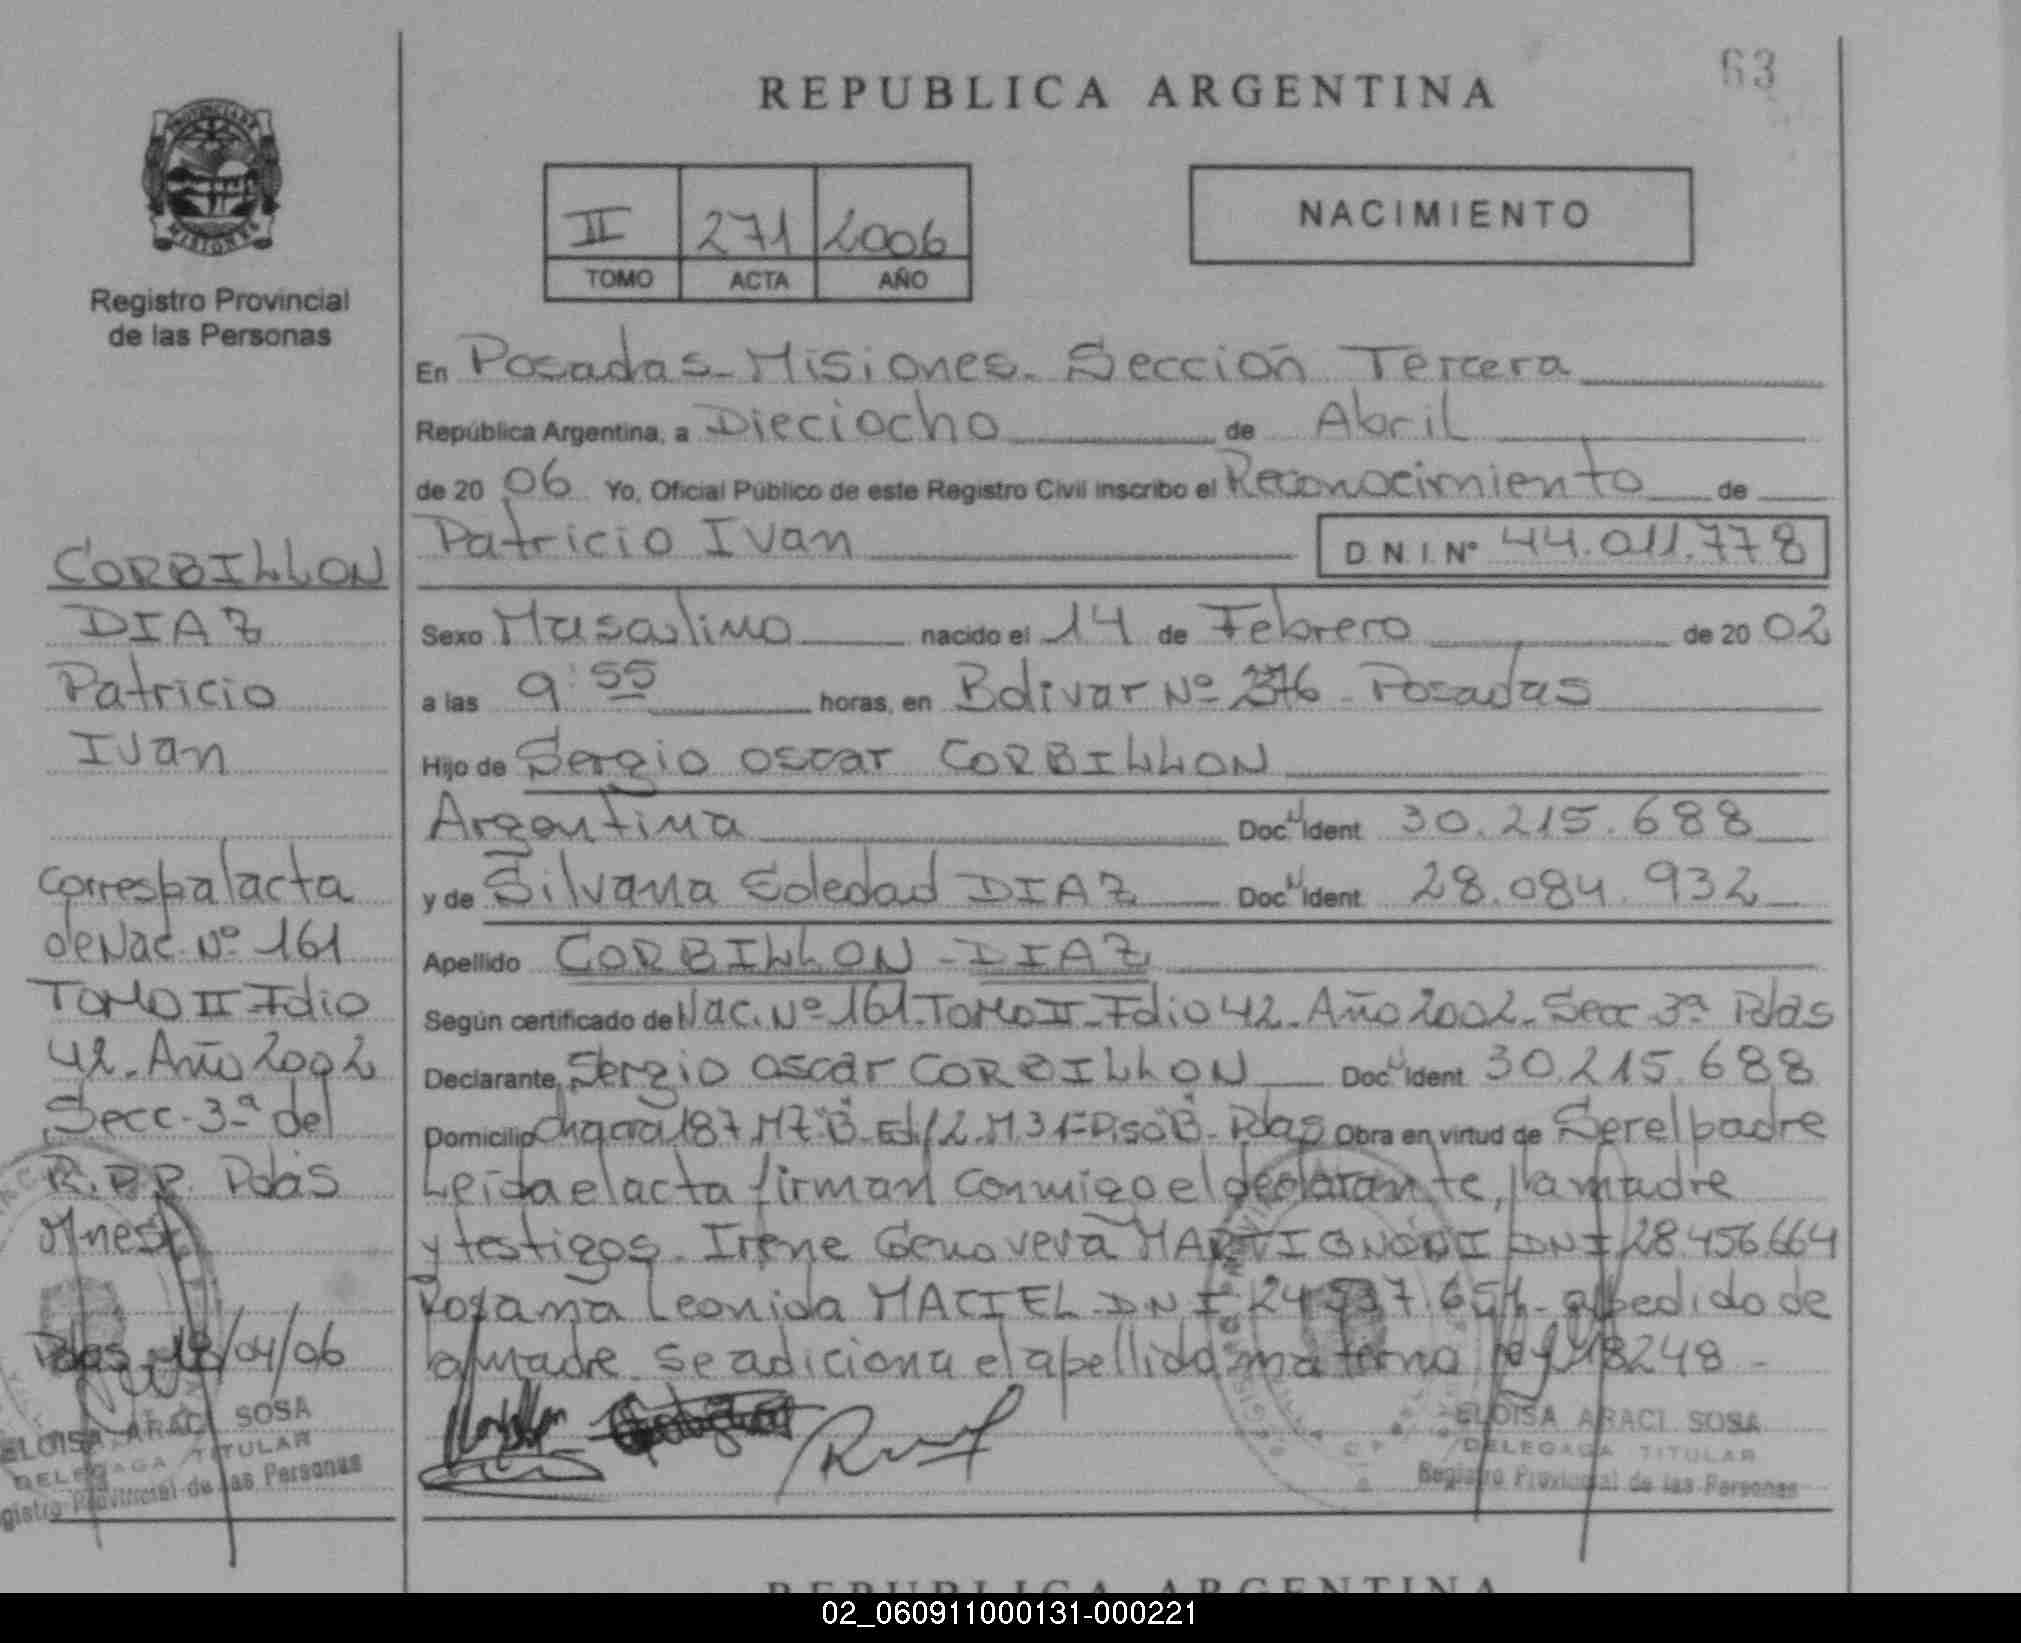 63
REPUBLICA ARGENTINA
PROVINCIA DE
MISIONES
Registro Provincial
de las Personas
II 271 2006
TOMO ACTA AÑO
NACIMIENTO
En Posadas-Misiones-Sección Tercera
República Argentina, a Dieciocho de Abril
de 20 06 Yo, Oficial Público de este Registro Civil inscribo el Reconocimiento de
Patricio Ivan D.N.I. Nº 44.011.778
Sexo Masculino nacido el 14 de Febrero de 20 02
a las 9:55 horas, en Bolivar Nº 376 - Posadas
Hijo de Sergio Oscar CORBILLON
Argentina Doc. Ident 30.215.688
y de Silvana Soledad DIAZ Doc. Ident. 28.084.932
Apellido CORBILLON - DIAZ
Según certificado de Nac. Nº 161-Tomo II-Folio 42-Año 2002-Secc 3ª Pdas
Declarante Sergio Oscar CORBILLON Doc. Ident 30.215.688
Domicilio Chacra 187 M7"B"-Ed/2-M 3 1ºPiso"B"-Pdas Obra en virtud de Ser el padre
Leida el acta firman conmigo el declarante, la madre
y testigos. Irene Genoveva MARTIGNONI DNI 28.456.664
Rosana Leonida MACIEL DNI a pedido de
la madre se adiciona el apellido materno ley 18248 -
ELOISA ARACI SOSA
DELEGADA TITULAR
Registro Provincial de las Personas
CORBILLON
DIAZ
Patricio
Ivan
Corresp al acta
de Nac. Nº 161
Tomo II Folio
42-Año 2002
Secc-3ª del
R.P.P. Pdas
Mnes
Pdas 18/04/06
ELOISA ARACI SOSA
DELEGADA TITULAR
gistro Provincial de las Personas
REPUBLICA ARGENTINA
02_060911000131-000221